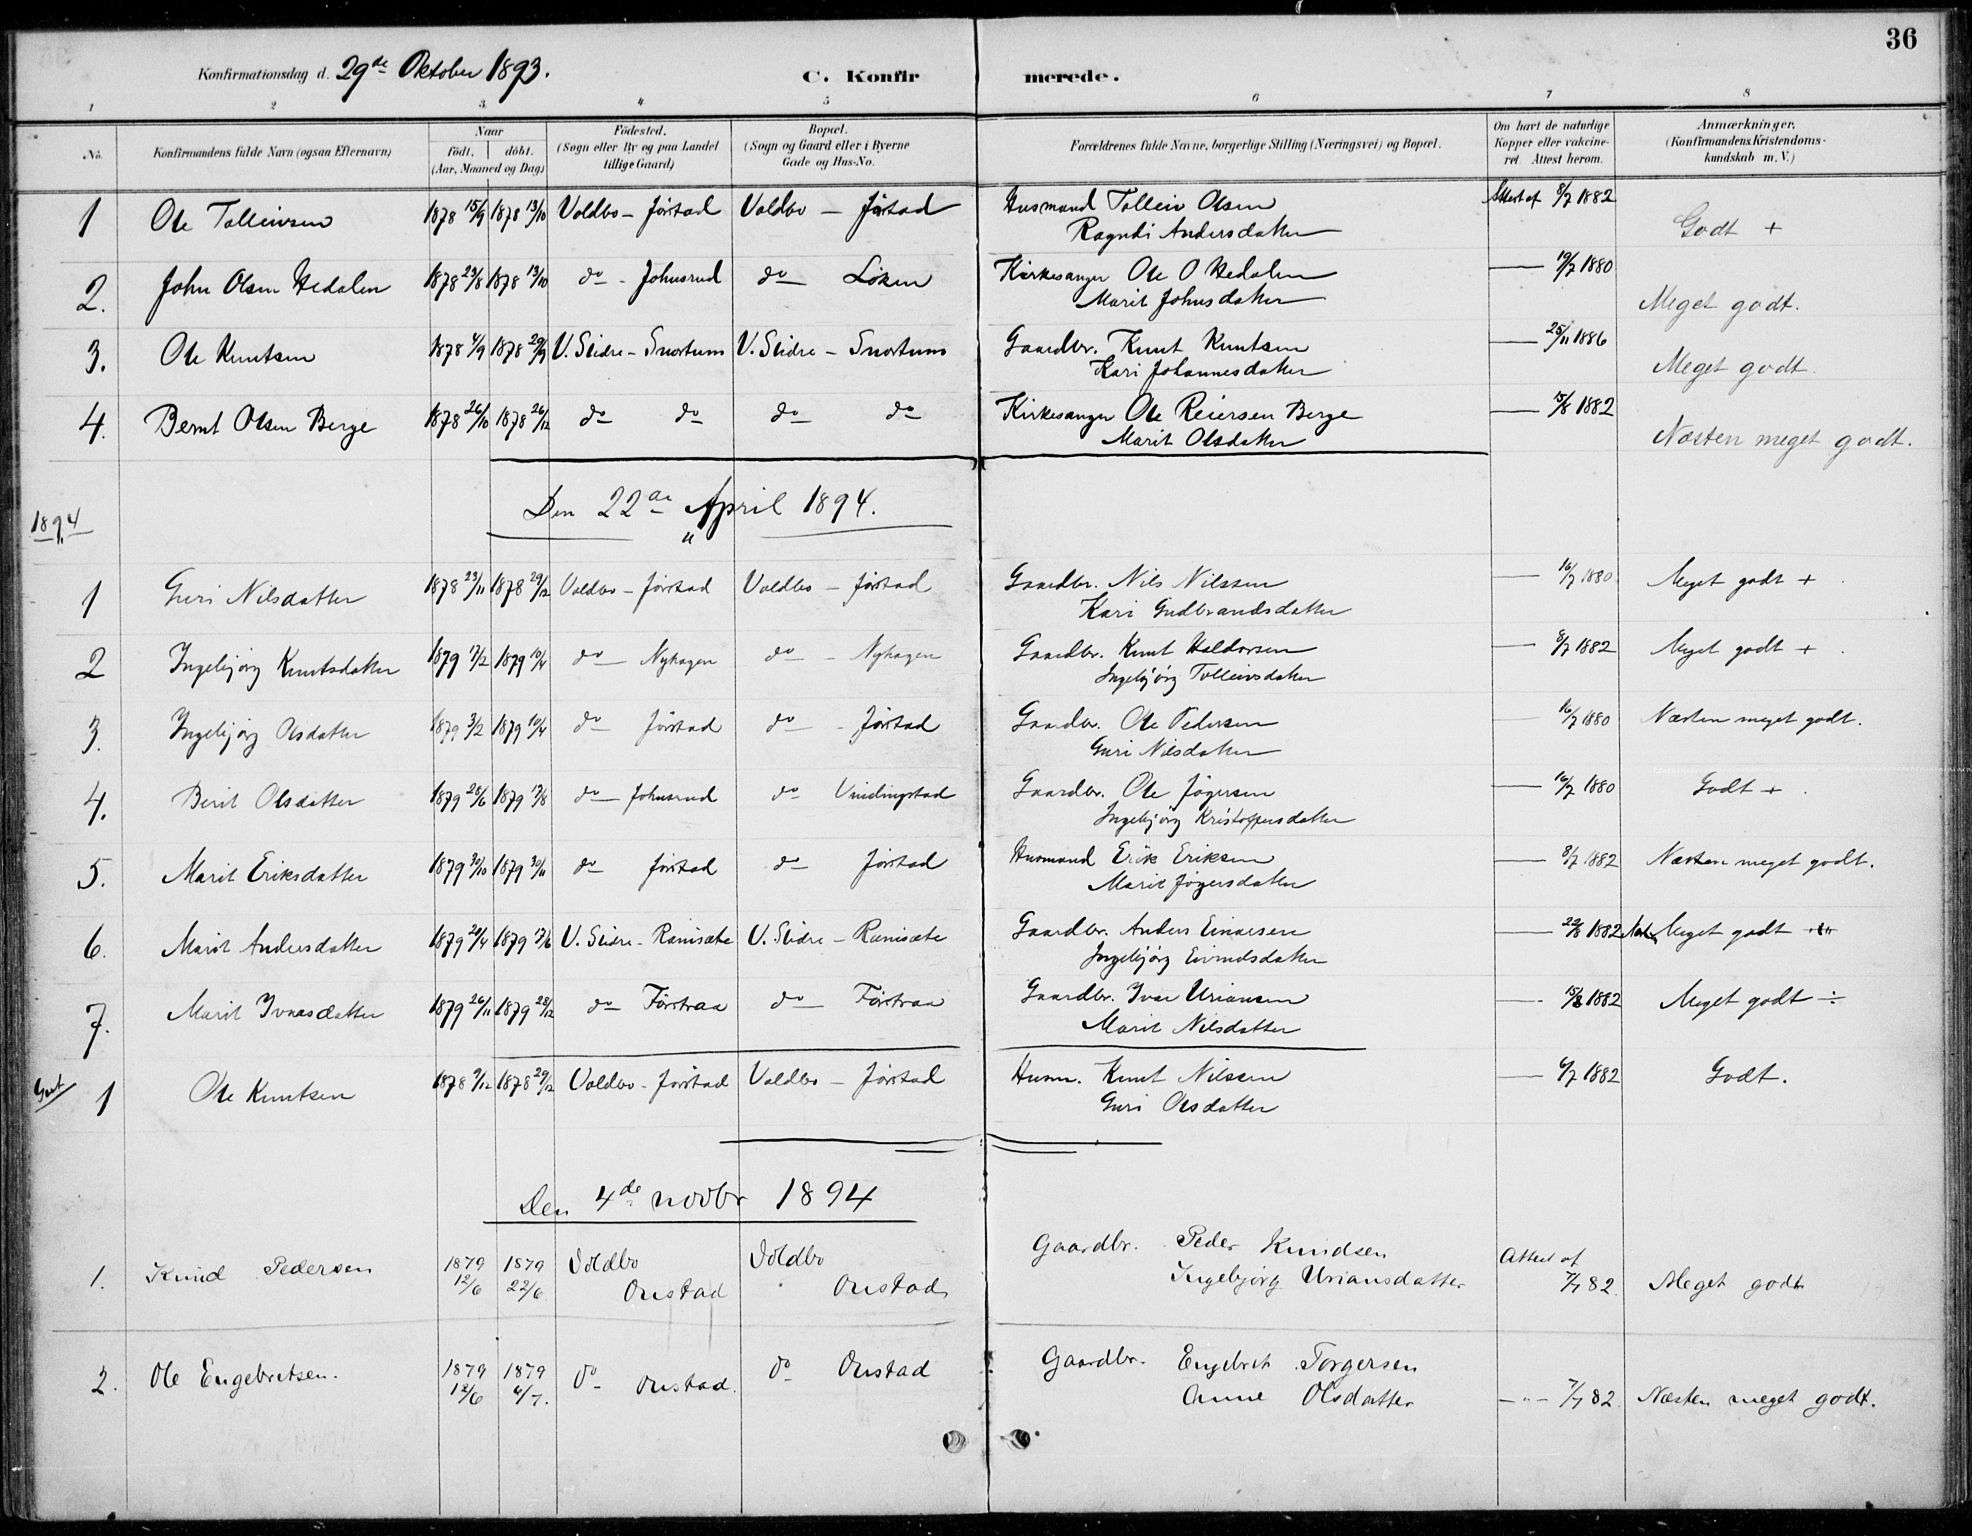 36
Konfirmationsdag d. 29de Oktober 1893.
C. Konfirmerede.
1 2 3 4 5 6 7 8
No.
Konfirmandens fulde Navn (ogsaa Efternavn)
Naar
født. døbt.
(Aar, Maaned og Dag)
Fødested.
(Sogn eller By og paa Landet
tillige Gaard)
Bopæl.
(Sogn og Gaard eller i Byerne
Gade og Hus-No.
Forældrenes fulde Navne, borgerlige Stilling (Næringsvei) og Bopæl.
Om havt de naturlige
Kopper eller vakcineret. Attest herom.
Anmærkninger.
(Konfirmandens Kristendomskundskab m. V.)
1 Ole Tolleivsen 1878 15/9 1878 13/10 Voldbo – Jørstad Voldbo – Jørstad Husmand Tolleiv Olsen Attest af 8/7 1882 Godt +
Ragndi Andersdatter
2. John Olsen Hedalen 1878 23/8 1878 13/10 do - Johnsrud do – Løken Kirkesanger Ole O Hedalen — 19/7 1880 Meget godt.
Marit Johnsdatter
3. Ole Knutsen 1878 4/9 1878 29/9 V. Slidre – Snortum V. Slidre – Snortum Gaardbr. Knut Knutsen — 25/11 1886 Meget godt.
Kari Johannesdatter
4. Bernt Olsen Berge 1878 26/10 1878 26/12 do do do do Kirkesanger Ole Reiersen Berge — 15/8 1882 Næsten meget godt.
Marit Olsdatter
1894
Den 22de April 1894.
1 Guri Nilsdatter 1878 23/11 1878 29/12 Voldbo – Jørstad Voldbo – Jørstad Gaardbr. Nils Nilssen — 16/7 1880 Meget godt +
Kari Gudbrandsdatter
2 Ingebjørg Knutsdatter 1879 17/2 1879 10/4 do – Nyhagen do – Nyhagen Gaardbr. Knut Haldorsen — 8/7 1882 Meget godt +
Ingebjørg Tolleivsdatter
3. Ingebjørg Olsdatter 1879 3/2 1879 10/4 do – Jørstad do - Jørstad Gaardbr. Ole Pedersen — 16/7 1880 Næsten meget godt.
Guri Nilsdatter
4. Berit Olsdatter 1879 28/6 1879 17/8 do – Johnsrud do Vindingstad Gaardbr. Ole Jøgersen — 16/7 1880 Godt +
Ingebjørg Kristoffersdatter
5. Marit Eriksdatter 1879 30/10 1879 30/11 do Jørstad do Jørstad Husmand Erik Eriksen — 8/7 1882 Næsten meget godt.
Marit Jøgersdatter
6. Marit Andersdatter 1879 20/4 1879 17/6 V. Slidre - Ranisæte V. Slidre – Ranisæte Gaardbr. Anders Einarsen — 22/8 1882 Meget godt
Ingebjørg Eivindsdatter
7. Marit Ivarsdatter 1879 26/11 1879 28/12 do – Førstraa do – Førstraa Gaardbr. Ivar Uriansen — 15/8 1882 Meget godt ÷
Marit Nilsdatter
Gut 1 Ole Knutsen 1878 9/12 1878 29/12 Voldbo - Jørstad Voldbo – Jørstad Husm. Knut Nilssen — 6/7 1882 Godt.
Guri Olsdatter
Den 4de novbr 1894
1. Knud Pedersen 1879 12/6 1879 22/6 Voldbo Onstad Voldbo Onstad Gaardbr. Peder Knudsen Attest af 7/7 82. Meget godt
Ingebjørg Uriansdatter
2. Ole Engebretsen. 1879 12/6 1879 6/7. do Onstad. do Onstad Gaardbr. Engebret Torgersen –"– 7/7 82. Næsten meget godt.
Anne Olsdatter